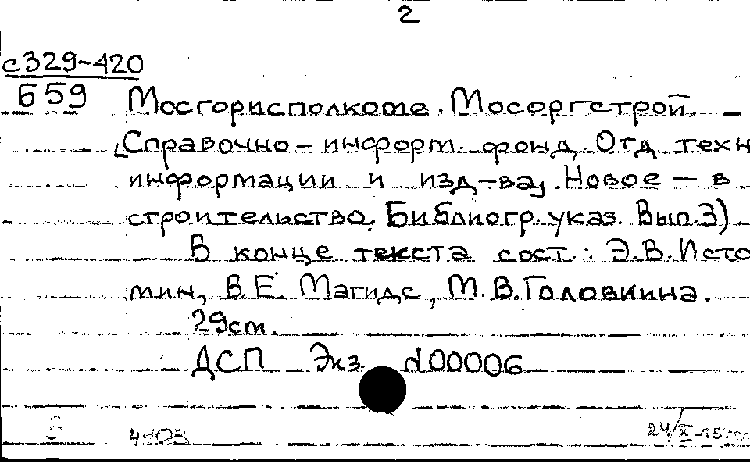 2
с329-420
Б59
Мосгорисполкома. Мосоргстрой. –
(Справочно-информ. фонд. Отд техн
информации и изд-ва, Новое – в
строительство. Библиогр. указ. Вып.3)
В конце текста сост.: Э.В.Исто
мин, В.Е. Магидс, М.В.Головкина.
29см.
ДСП Экз. №00006